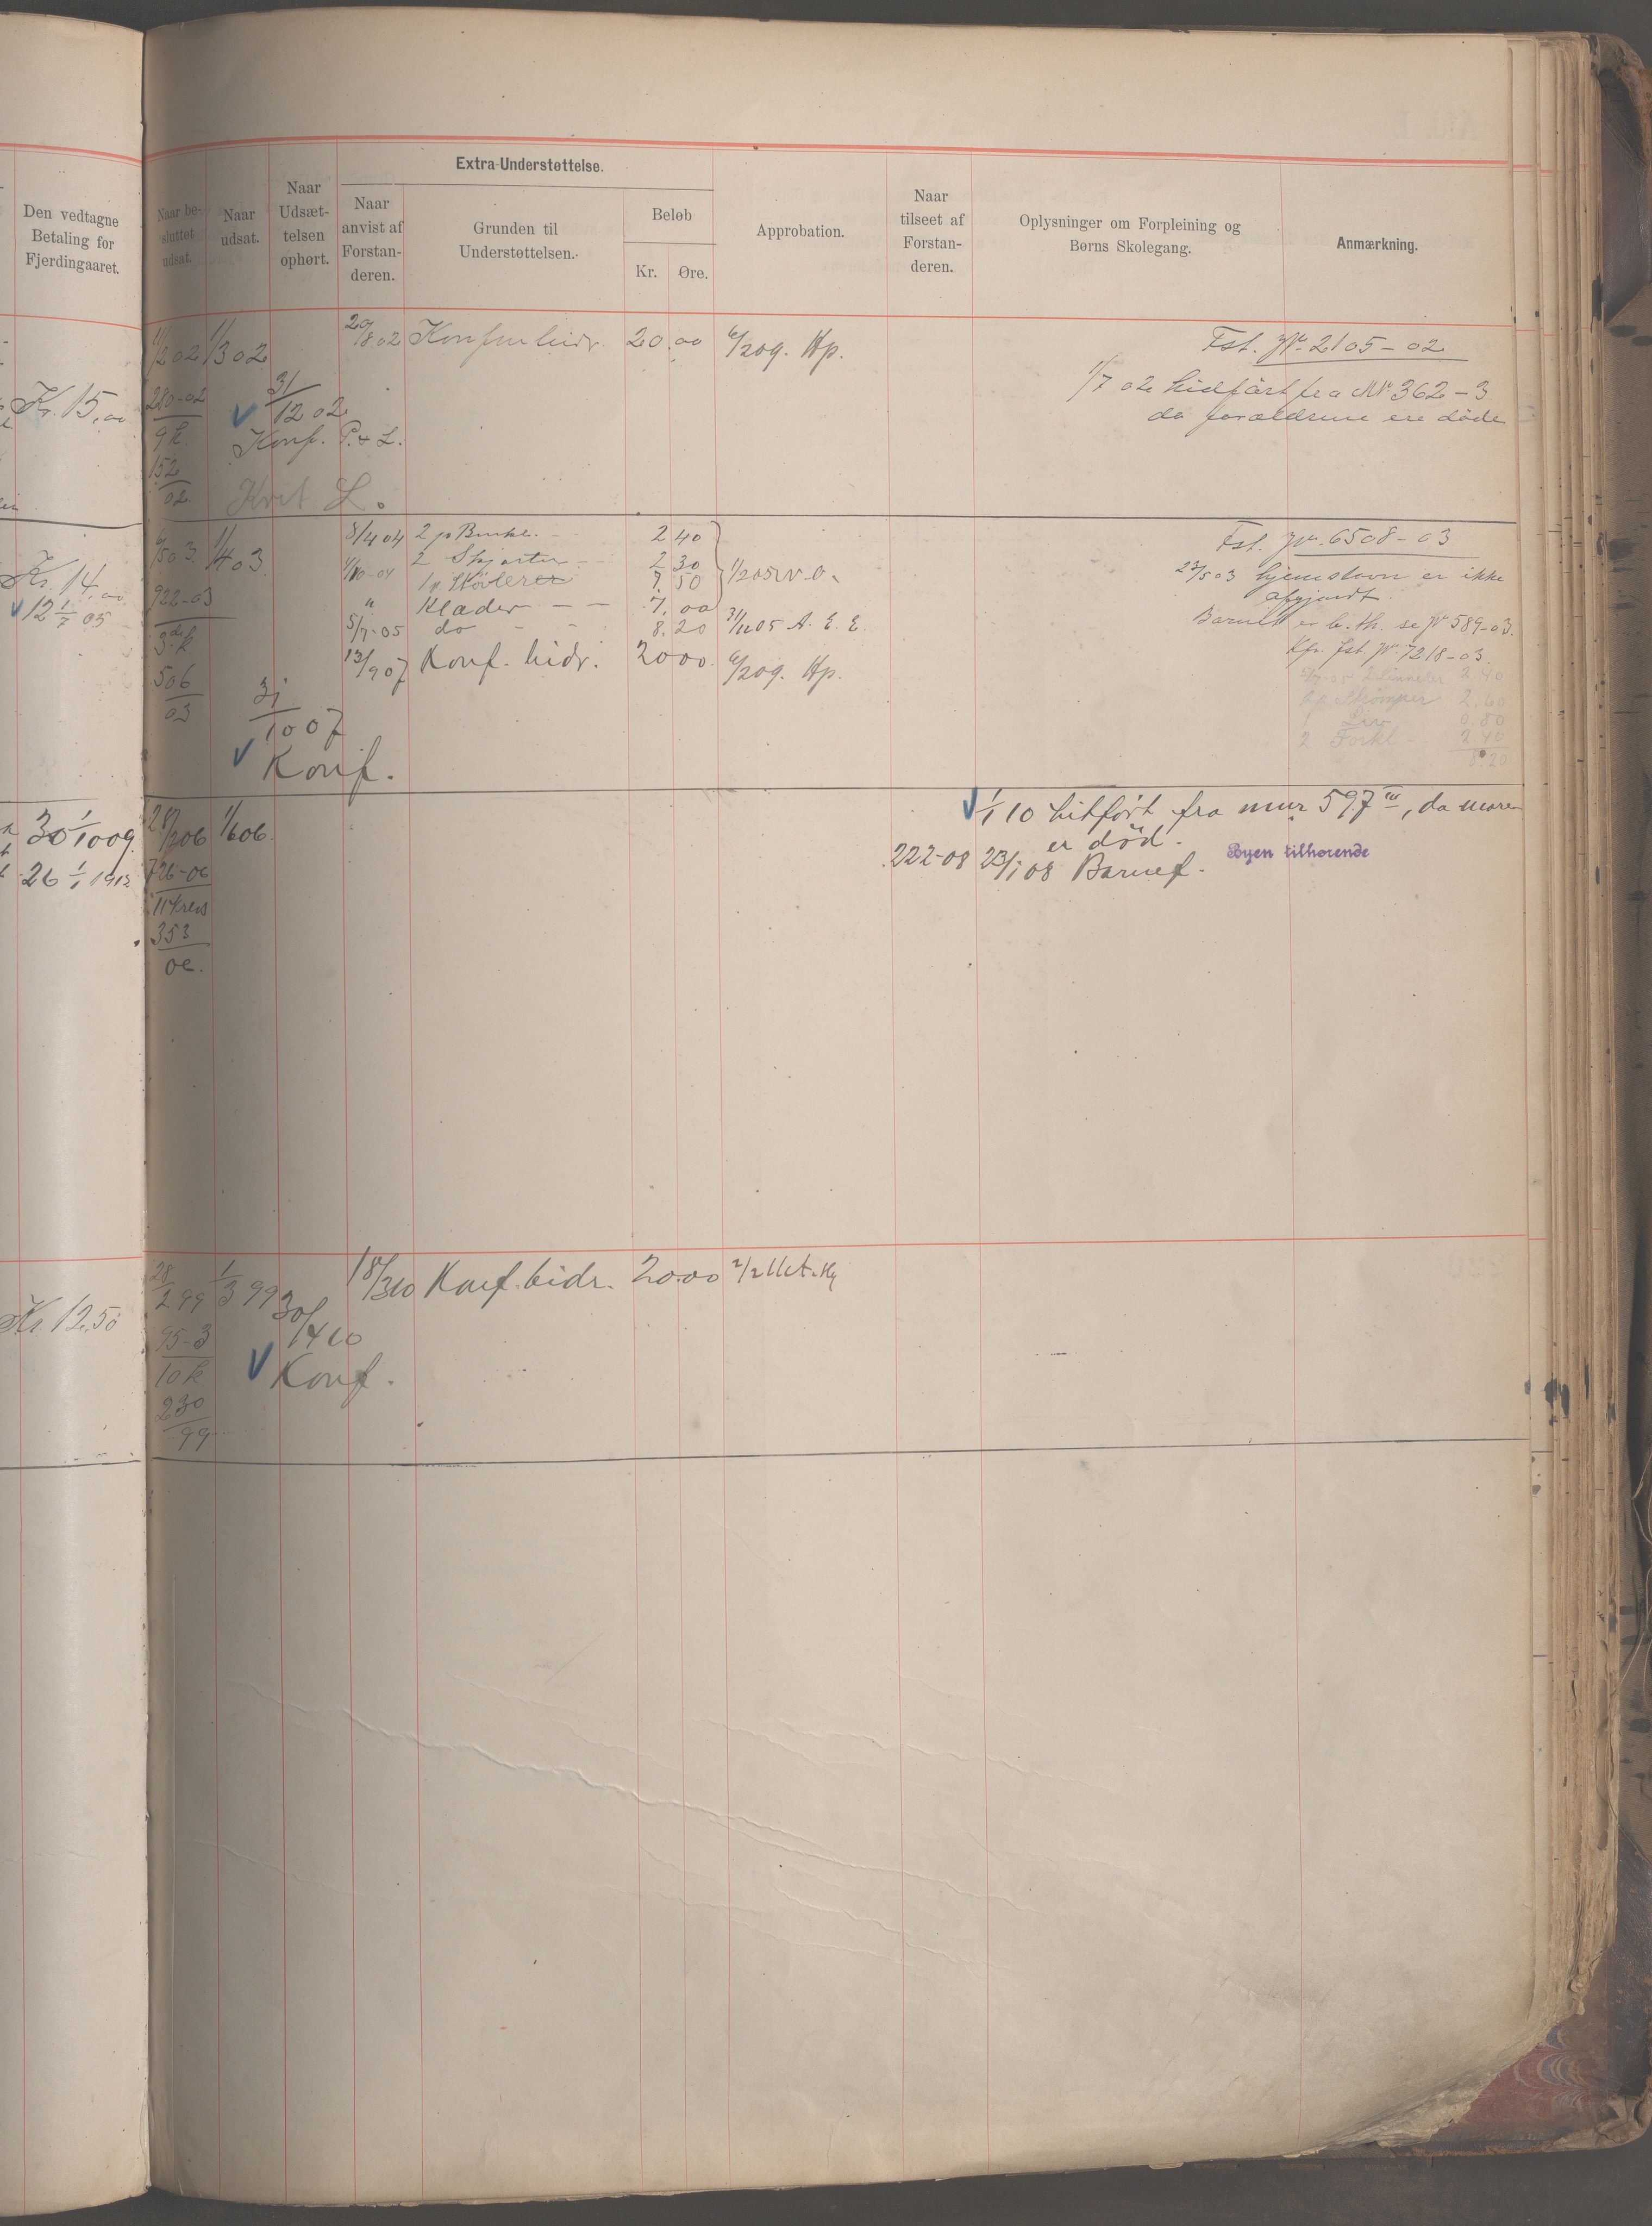 Den vedtagne
Betaling for
Fjerdingaaret.
Naar be-
sluttet
udsat.
Naar
udsat.
Naar
Udsæt-
telsen
ophørt.
Extra-Understøttelse.
Naar
anvist af
Forstan-
deren.
Grunden til
Understøttelsen.
Beløb
Kr. Øre.
Approbation.
Naar
tilseet af
Forstan-
deren.
Oplysninger om Forpleining og
Børns Skolegang.
Anmærkning.
Kr. 15,00
11/2 02 1/3 02
280-02
9 k.
152
02
31/12 02
Konf. P. & L.
Kvit L.
20/8 02 20.00 6/2 09. Hp.
Fst. Nr. 2105-02
1/7 02 hidført fra Nr. 362-3
da forældrene ere døde
Kr. 14,00
12 1/7 05
6/5 03. 1/4 03
922-03
3die k
506
03
31/10 07
Konf.
8/4 04 2 p 2 40
2 Skjorter 2 30
7. 50
" Klæder — — 7. 00
5/7-05 do - - 8. 20 31/12 05 A. E. E.
13/9 07 Konf. bidr. 20 00. 6/2 09. Hp.
Fst. Nr. 6508-03
23/5 03 hjemstavn er ikke
afgjordt.
Barnet er b. th. se Nr 589-03.
Kfr. fst Nr. 7218-03.
2 Linneter 2.40
2 p. Strømper 2.60
1 Liv 0.80
2 Forkl. 2.40
8.20
30 1/10 09.
26 1/1 1912
28/2 06 1/6 06.
726-06
11 Kreds
353
06.
1/1 10 hitført fra mnr 597, da moren
er død.
222-08 23/1 08 Barnef. Byen tilhørende
Kr. 12,50
28/2 99 1/3 99
95-3
10 k
230
99
30/4 10
Konf.
18/3 10 Konf. bidr. 20.00